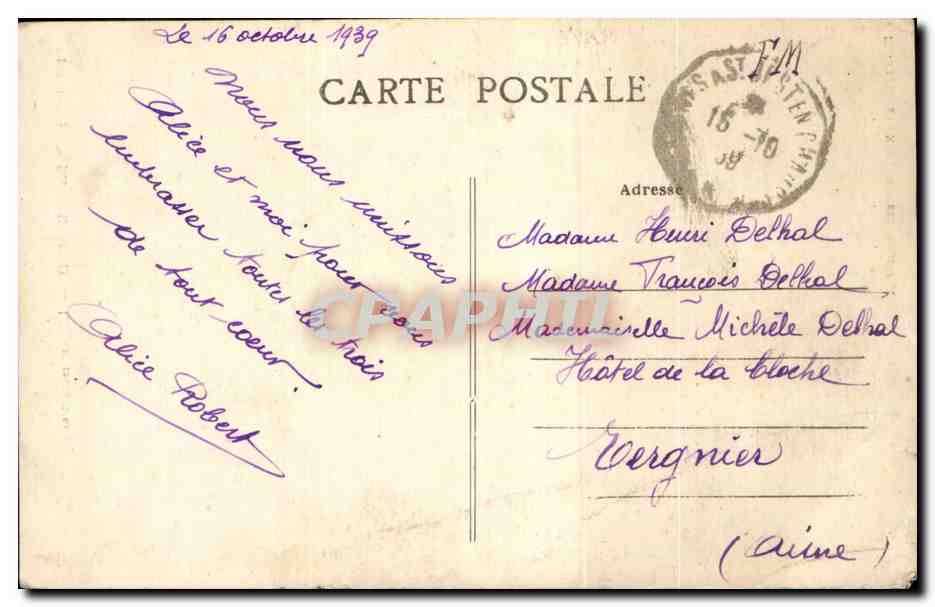 Le 16 octobre 1939
FM
CARTE POSTALE
16-10
39
Nous nous unissons
Alice et moi pour vous
embrasser toutes les trois
de tout coeur.
Alice Robert
Adresse
Madame Henri Delhal
Madame François Delhal
Mademoiselle Michèle Delhal
Hôtel de la Cloche
Tergnier
(Aisne)
CPAPHIL